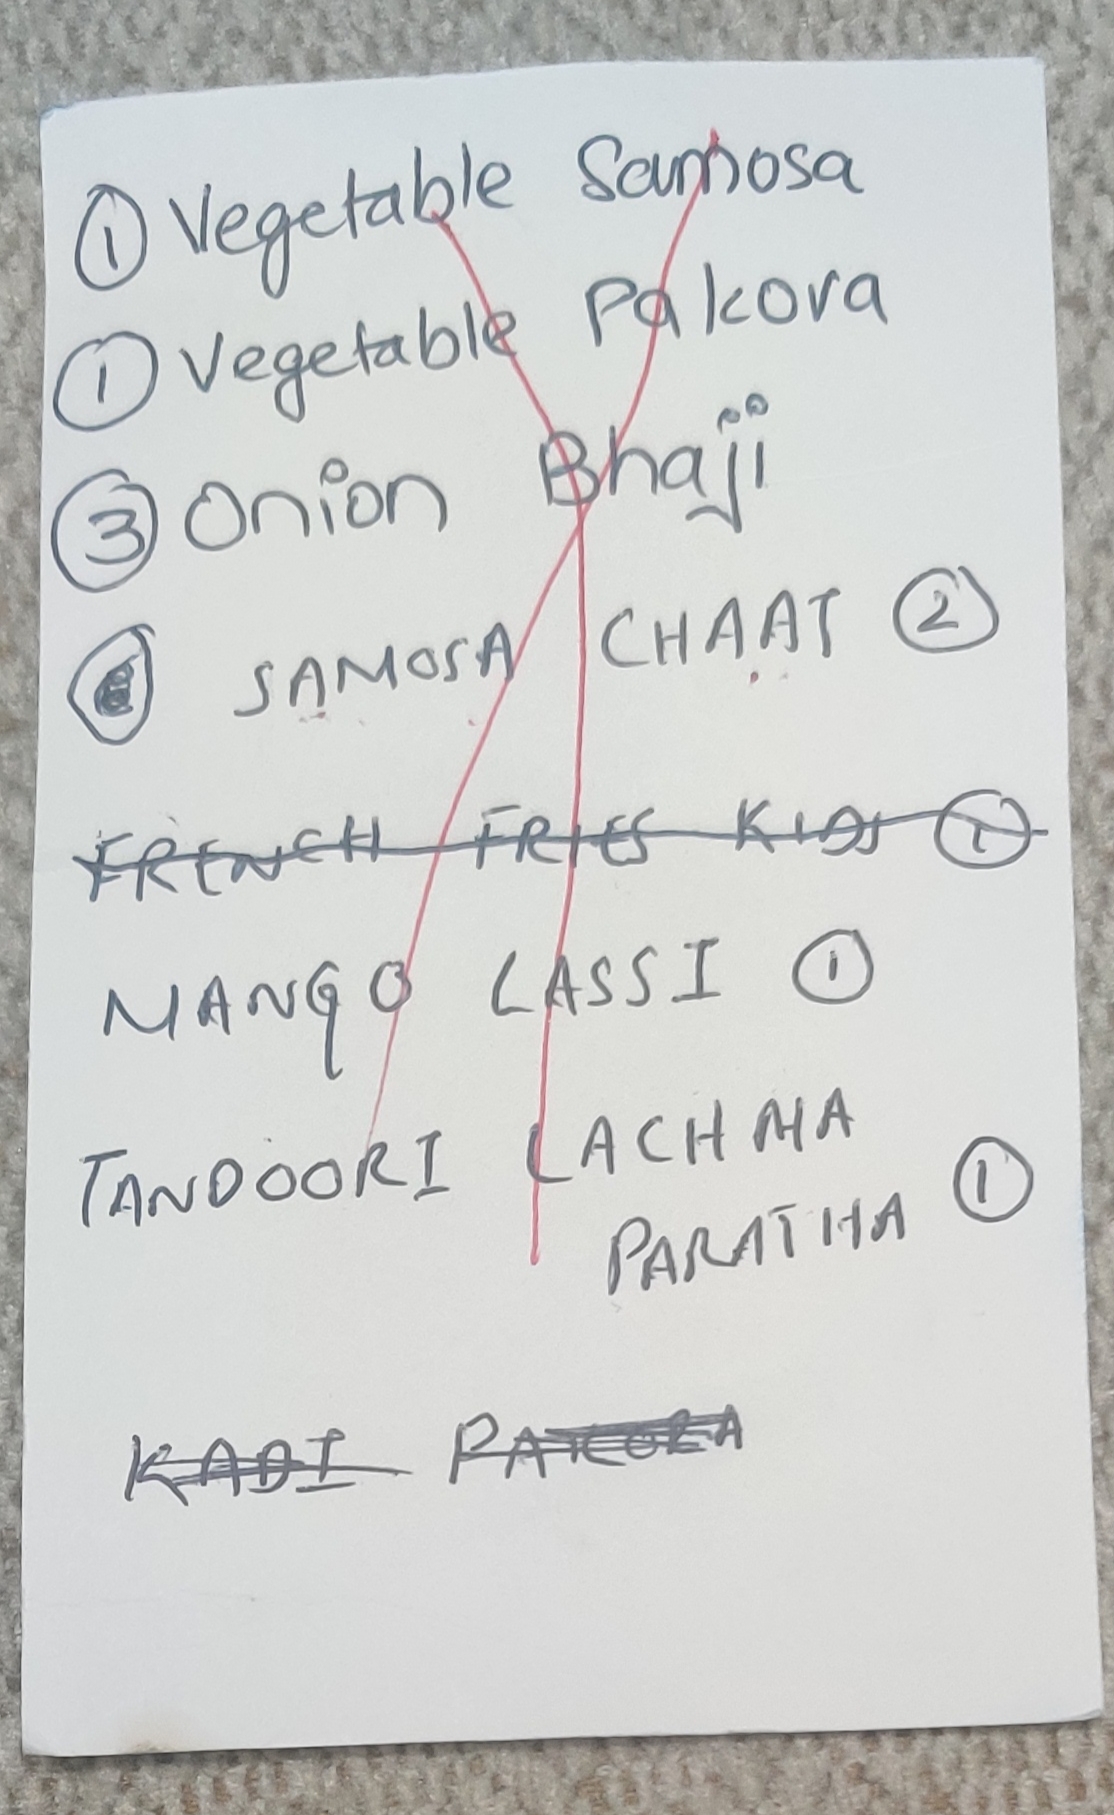 ① Vegetable Samosa
① Vegetable Pakora
③ Onion Bhaji
SAMOSA CHAAT ②
FRENCH FRIES KIDS ①
MANGO LASSI ①
TANDOORI LACHHA
PARATHA ①
KADI PAKORA